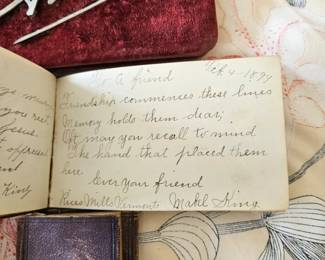 To A friend Feb 4-1899
Friendship commences these lines
Memory holds them dear;
Oft may you recall to mind
The hand that placed them
here.
Ever Your friend
Mills Vermont Mabel King
you rest
Jesus.
oppressed
King